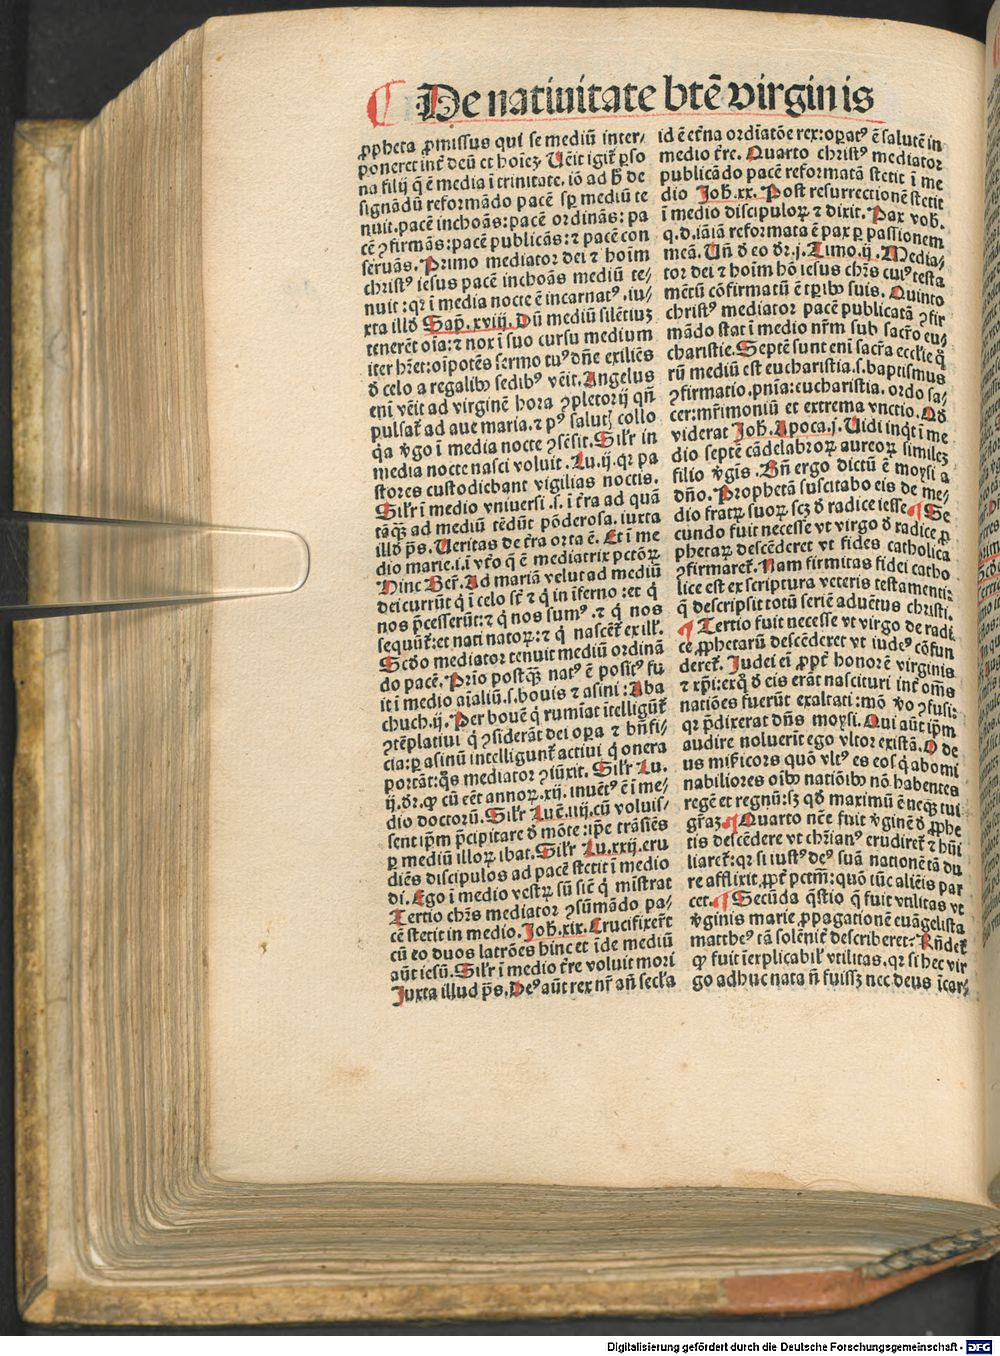 De natiuitate btē virginis
ꝓpheta ꝓmissus qui se mediū inter⸗
poneret int̄ deū et hoīeꝫ. Uēit igit᷑ ꝑso
na filij q̄ ē media ī trinitate. iō ad ħ de
signādū reformādo pacē sꝑ mediū te
nuit. pacē inchoās: pacē ordinās: pa
cē ꝯfirmās: pacē publicās: ⁊ pacē con
seruās. Primo mediator dei ⁊ hoīm
christꝰ iesus pacē inchoās mediū te⸗
nuit: qꝛ ī media nocte ē incarnatꝰ. iu⸗
xta illđ Sap̄. xviij. Dū mediū silētiuꝫ
tenerēt oīa: ⁊ nox ī suo cursu medium
iter hr̄et: oīpotēs sermo tuꝰ dn̄e exiliēs
đ celo a regalibꝫ sedibꝰ vēit. Angelus
eni vēit ad virginē hora ꝯpletorij qn̄
pulsat᷑ ad aue maria. ⁊ pꝰ salutꝭ collo
q̄a v̄go ī media nocte ꝯsēsit. Sil̄r in
media nocte nasci voluit. Lu. ij. qꝛ pa
stores custodiebant vigilias noctis.
Sil̄r ī medio vniuersi .s. ī t̄ra ad quā
tāqꝫ ad mediū tēdūt pōderosa. iuxta
illđ p̄s. Ueritas de t̄ra orta ē. Et ī me
dio marie. i. ī vt̄o q̄ ē mediatrix pctōꝝ
Hinc Ber̄. Ad mariā velut ad mediū
dei currūt q̇ ī celo sr̄ ⁊ q̇ in īferno: et q̇
nos p̄cesserūt: ⁊ q̇ nos sumꝰ. ⁊ q̇ nos
sequūt᷑: et nati natoꝝ: ⁊ q̇ nascēt᷑ ex ill᷑.
Scđo mediator tenuit mediū ordinā
do pacē. Prio postqꝫ natꝰ ē positꝰ fu
it ī medio aīaliū .s. bouis ⁊ asini: Aba
chuch. ij. Per bouē q̇ rumīat ītelligūt᷑
ꝯtēplatiui q̇ ꝯsiderāt dei oꝑa ⁊ bn̄fi⸗
cia: ꝑ asinū intelligunt᷑ actiui q̇ onera
portāt: q̄s mediator ꝯiūxit. Sil̄r Lu.
ij. dr̄. ꝙ cū eēt annoꝝ .xij. inuētꝰ ē ī me⸗
dio doctorū. Sil̄r Luc̄. iiij. cū voluis⸗
sent ip̄m p̄cipitare đ mōte: ip̄e trāsiēs
ꝑ mediū illoꝝ ibat. Sil̄r Lu. xxij. eru
diēs discipulos ad pacē stetit ī medio
di. Ego ī medio vestꝝ sū siē q̇ mīstrat
Tertio chr̄s mediator ꝯsūmādo pa⸗
cē stetit in medio. Joh̄. xix. Crucifixer̄t
cū eo duos latrōes hinc et īde mediū
aūt iesū. Sil̄r ī medio t̄re voluit mori
Juxta illud p̄s. Deꝰ aūt rex nr̄ an̄ secl̄a
id ē et̄na ordīatōe rex: oꝑatꝰ ē salutē in
medio t̄re. Quarto christꝰ mediator
publicādo pacē reformatā stetit ī me
dio Joh̄. xx. Post resurrectionē stetit
ī medio discipuloꝝ ⁊ dixit. Pax vob̄.
q. d. iāiā reformata ē pax ꝑ passionem
meā. Un̄ đ eo dr̄. j. Timo. ij. Media⸗
tor dei ⁊ hoīm hō iesus chr̄s cuiꝰ testa
mētū cōfirmatū ē t̄pibꝫ suis. Quinto
christꝰ mediator pacē publicatā ꝯfir
mādo stat ī medio nr̄m sub sacr̄o eu⸗
charistie. Septē sunt eni sacr̄a eccl̄ie q̄
rū mediū est eucharistia .s. baptismus
ꝯfirmatio. pn̄ia: eucharistia. ordo sa⸗
cer: mr̄imoniū et extrema vnctio. Qđ
viderat Joh̄. Apoca. j. Uidi inq̇t ī me
dio septē cādelabroꝝ aureoꝝ simileꝫ
filio v̄gīs. Bn̄ ergo dictū ē moysi a
dn̄o. Prophetā suscitabo eis de me⸗
dio fratꝝ suoꝝ scꝫ đ radice iesse ¶ Se
cundo fuit necesse vt virgo đ radice ꝓ
phetaꝝ descēderet vt fides catholica
ꝯfirmaret᷑. Nam firmitas fidei catho
lice est ex scriptura veteris testamenti:
q̄ descripsit totū seriē aduētus christi.
¶ Tertio fuit necesse vt virgo de radi
ce ꝓphetarū descēderet vt iudeꝰ cōfun
deret᷑. Judei ei ꝓpt̄ honorē virginis
⁊ xp̄i: exq̇ đ eis erāt nascituri int̄ om̄s
natiōes fuerūt exaltati: mō v̄o ꝯfusi:
qꝛ p̄dixerat dn̄s moysi. Qui aūt ip̄m
audire noluerīt ego vltor existā. O de
us mīsicors quō vltꝰ es eos q̇ abomi
nabiliores oībꝫ natiōibꝫ nō habentes
regē et regnū: sꝫ qđ maximū ē necqꝫ tui
gr̄aꝫ ¶ Quarto nc̄e fuit v̄ginē đ ꝓphe
tis descēdere vt chr̄ianꝰ erudiret᷑ ⁊ hūi
liaret᷑: qꝛ si iustꝰ deꝰ suā nationē tā du
re afflixit ꝓpt̄ pctm̄: quō tūc aliēis par
cet. ¶ Secūda q̄stio q̄ fuit vtilitas vt
v̄ginis marie ꝓpagationē euāgelista
mattheꝰ tā solēnit̄ describeret: Rn̄det᷑
ꝙ fuit īexplicabil᷑ vtilitas. qꝛ si hec vir
go adhuc nata n̄ fuissꝫ nec deus īcar⸗
Digitalisierung gefördert durch die Deutsche Forschungsgemeinschaft - DFG